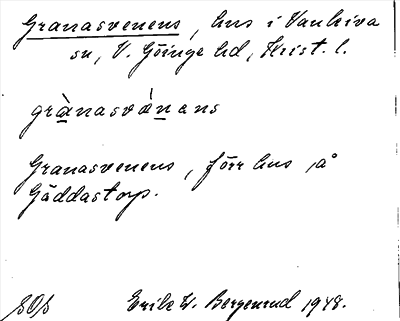 Granasvenens, hus i Vankiva
sn, V. Göinge hd, Krist. l.
grànasvànens
Granasvenens, förr hus på
Gäddastorp.
Erik W. Bergenrud 1948.